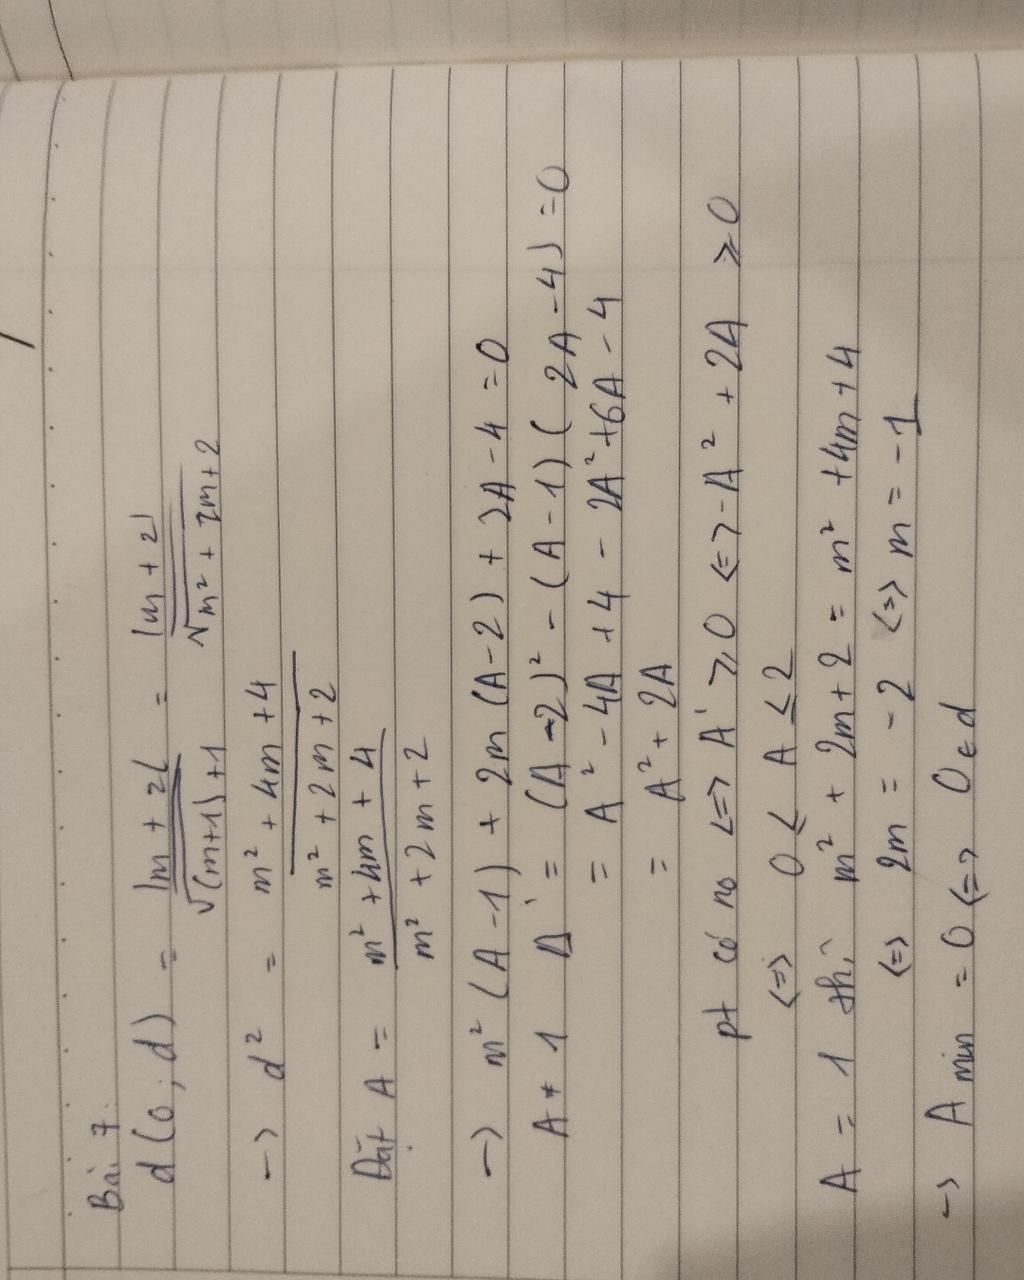 Bài 7.
d(0; d) = |m + 2| / √(m+1) + 1 = |m + 2| / √m² + 2m + 2
-> d² = m² + 4m + 4 / m² + 2m + 2
Đặt A = m² + 4m + 4 / m² + 2m + 2
-> m² (A - 1) + 2m (A - 2) + 2A - 4 = 0
A ≠ 1 Δ' = (A - 2)² - (A - 1) ( 2A - 4) = 0
= A² - 4A + 4 - 2A² + 6A - 4
= A² + 2A
pt có no <=> Δ' ≥ 0 <=> - A² + 2A ≥ 0
<=> 0 ≤ A ≤ 2
A = 1 thì m² + 2m + 2 = m² + 4m + 4
<=> 2m = - 2 <=> m = - 1
-> A min = 0 <=> O ∈ d